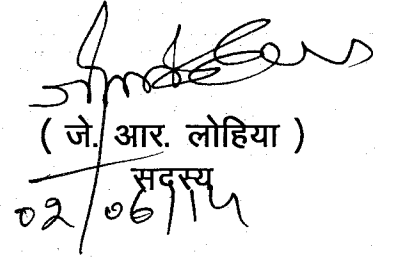 ( जे. आर. लोहिया )
सदस्य
02/06/14